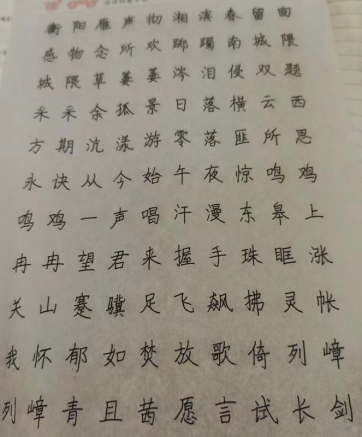 衡阳雁声彻湘滨春留回
感物念所欢踯躅南城隈
城隈草萋萋涔泪侵双题
采采余孤景日落横云西
方期沆漾游零落匪所思
永诀从今始午夜惊鸣鸡
鸣鸡一声唱汗漫东皋上
冉冉望君来握手珠眶涨
关山蹇骥足飞飙拂灵帐
我怀郁如焚放歌倚列嶂
列嶂青且茜愿言试长剑